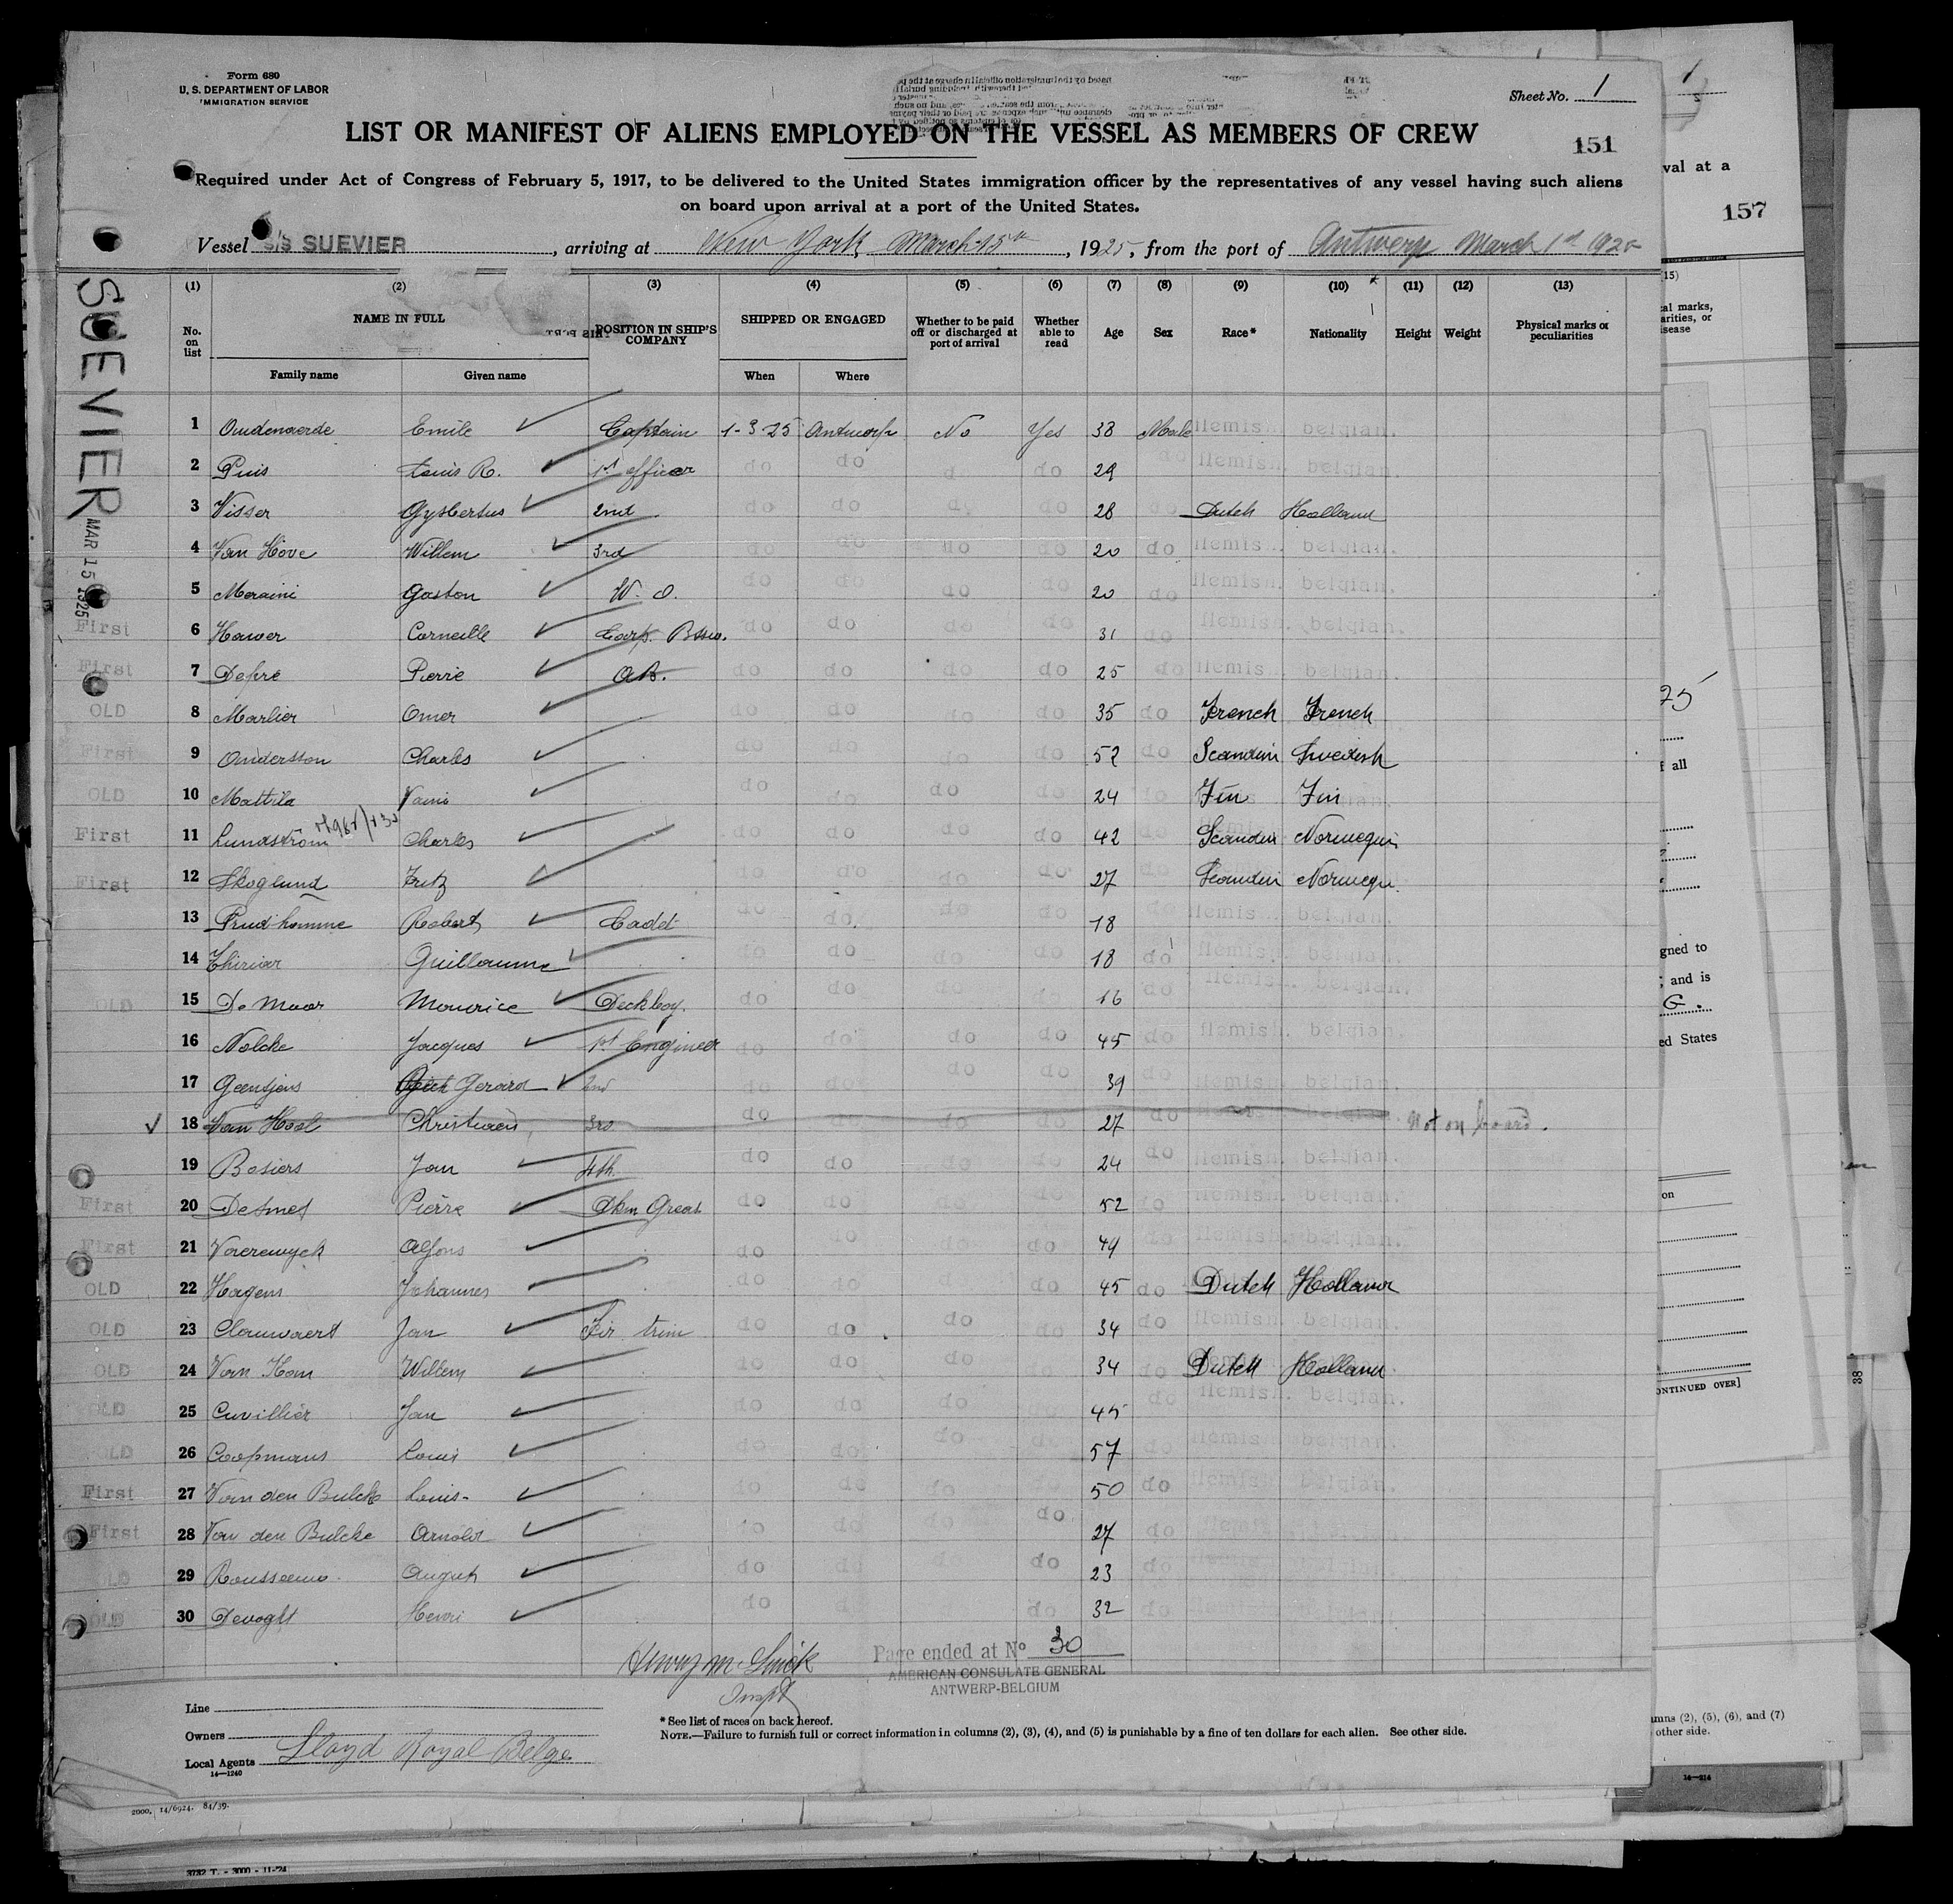 Form 680
U. S. DEPARTMENT OF LABOR
IMMIGRATION SERVICE
Sheet No. 1
LIST OR MANIFEST OF ALIENS EMPLOYED ON THE VESSEL AS MEMBERS OF CREW
151
Required under Act of Congress of February 5, 1917, to be delivered to the United States immigration officer by the representatives of any vessel having such aliens
on board upon arrival at a port of the United States.
Vessel S/S SUEVIER, arriving at New York, March 15th, 1925, from the port of Antwerp March 1st 192
(1) (2) (3) (4) (5) (6) (7) (8) (9) (10) (11) (12) (13)
No. on list NAME IN FULL POSITION IN SHIP'S COMPANY SHIPPED OR ENGAGED Whether to be paid off or discharged at port of arrival Whether able to read Age Sex Race* Nationality Height Weight Physical marks or peculiarities
Family name Given name When Where
1 Oudenaerde Emile Captain 1-3-25 Antwerp No Yes 38 Male flemish. belgian.
2 Puis Louis R. 1st officer do do do do 29 do flemish. belgian.
3 Visser Gysbertus 2nd do do do do 28 do Dutch Holland
4 Van Hove Willem 3rd do do do do 20 do flemish. belgian.
5 Meraini Gaston W. O. do do do do 20 do flemish. belgian.
First 6 Hawer Corneille Carp. Btsw. do do do do 31 do flemish. belgian.
First 7 Depré Pierre A.B. do do do do 25 do flemish. belgian.
OLD 8 Marlier Omer do do do do 35 do French French
First 9 Andersson Charles do do do do 52 do Scandin Swedish
OLD 10 Mattila Vaino do do do do 24 do Fin Fin
First 11 Lundström Charles do do do do 42 do Scandin Norwegin
First 12 Skoglund Fritz do do do do 27 do Scandin Norwegi.
13 Prud'homme Robert Cadet do do do do 18 flemish. belgian.
14 Thiriar Guillaume do do do do 18 do flemish. belgian.
OLD 15 De Maar Maurice Deckboy. do do do do 16 do flemish. belgian.
16 Nolcke Jacques 1st Engineer do do do do 45 do flemish. belgian.
17 Geentjens Gerard 2nd do do do do 39 do flemish. belgian.
18 Van Hool Christiaen, 3rd do do do do 27 do flemish. belgian. Not on board.
19 Bosiers Jan 4th do do do do 24 do flemish. belgian.
First 20 Desmet Pierre Dkm Greas do do do do 52 do flemish. belgian.
First 21 Verrewyck Alfons do do do do 49 flemish. belgian.
OLD 22 Hagens Johannes do do do do 45 do Dutch Holland
OLD 23 Clauwaert Jan Fir trim do do do do 34 do flemish. belgian.
OLD 24 Van Ham Willem do do do do 34 do Dutch Holland
OLD 25 Cuvillier Jan do do do do 45 do flemish. belgian.
OLD 26 Coopmans Louis do do do do 57 do flemish. belgian.
First 27 Van den Bulcke Louis- do do do do 50 do flemish. belgian.
First 28 Van den Bulcke Arnold do do do do 27 do flemish. belgian.
OLD 29 Rousseeuw August do do do do 23 do
OLD 30 Devoght Henri do do do 32 do flemish. belgian.
Page ended at No 30
AMERICAN CONSULATE GENERAL
ANTWERP-BELGIUM
Inspt
Line
Owners
Local Agents Lloyd Royal Belge
14—1240
*See list of races on back hereof.
NOTE.—Failure to furnish full or correct information in columns (2), (3), (4), and (5) is punishable by a fine of ten dollars for each alien. See other side.
2000, 14/6924. 84/39.
3732 T. - 3000 - 11-'24
SUEVIER
MAR 15 1925
val at a
157
(15)
cal marks,
arities, or
isease
25
f all
gned to
; and is
G.
ed States
on
ONTINUED OVER]
38
umns (2), (5), (6), and (7)
other side.
14—214